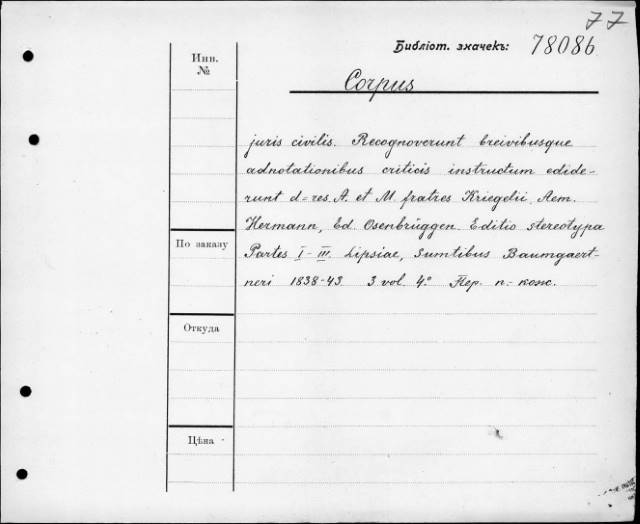 77
Библіот. значекъ: 78086
Инв.
№
Corpus
juris civilis. Recognoverunt breivibusque
adnotationibus criticis instructum edide-
runt d=res. A. et M. fratres Kriegelii, Aem.
Hermann, Ed. Osenbrüggen. Editio stereotypa
По заказу
Partes I-III. Lipsiae, Sumtibus Baumgaert-
neri 1838-43. 3 vol. 4.° Пер. п.-кож.
Откуда
Цѣна